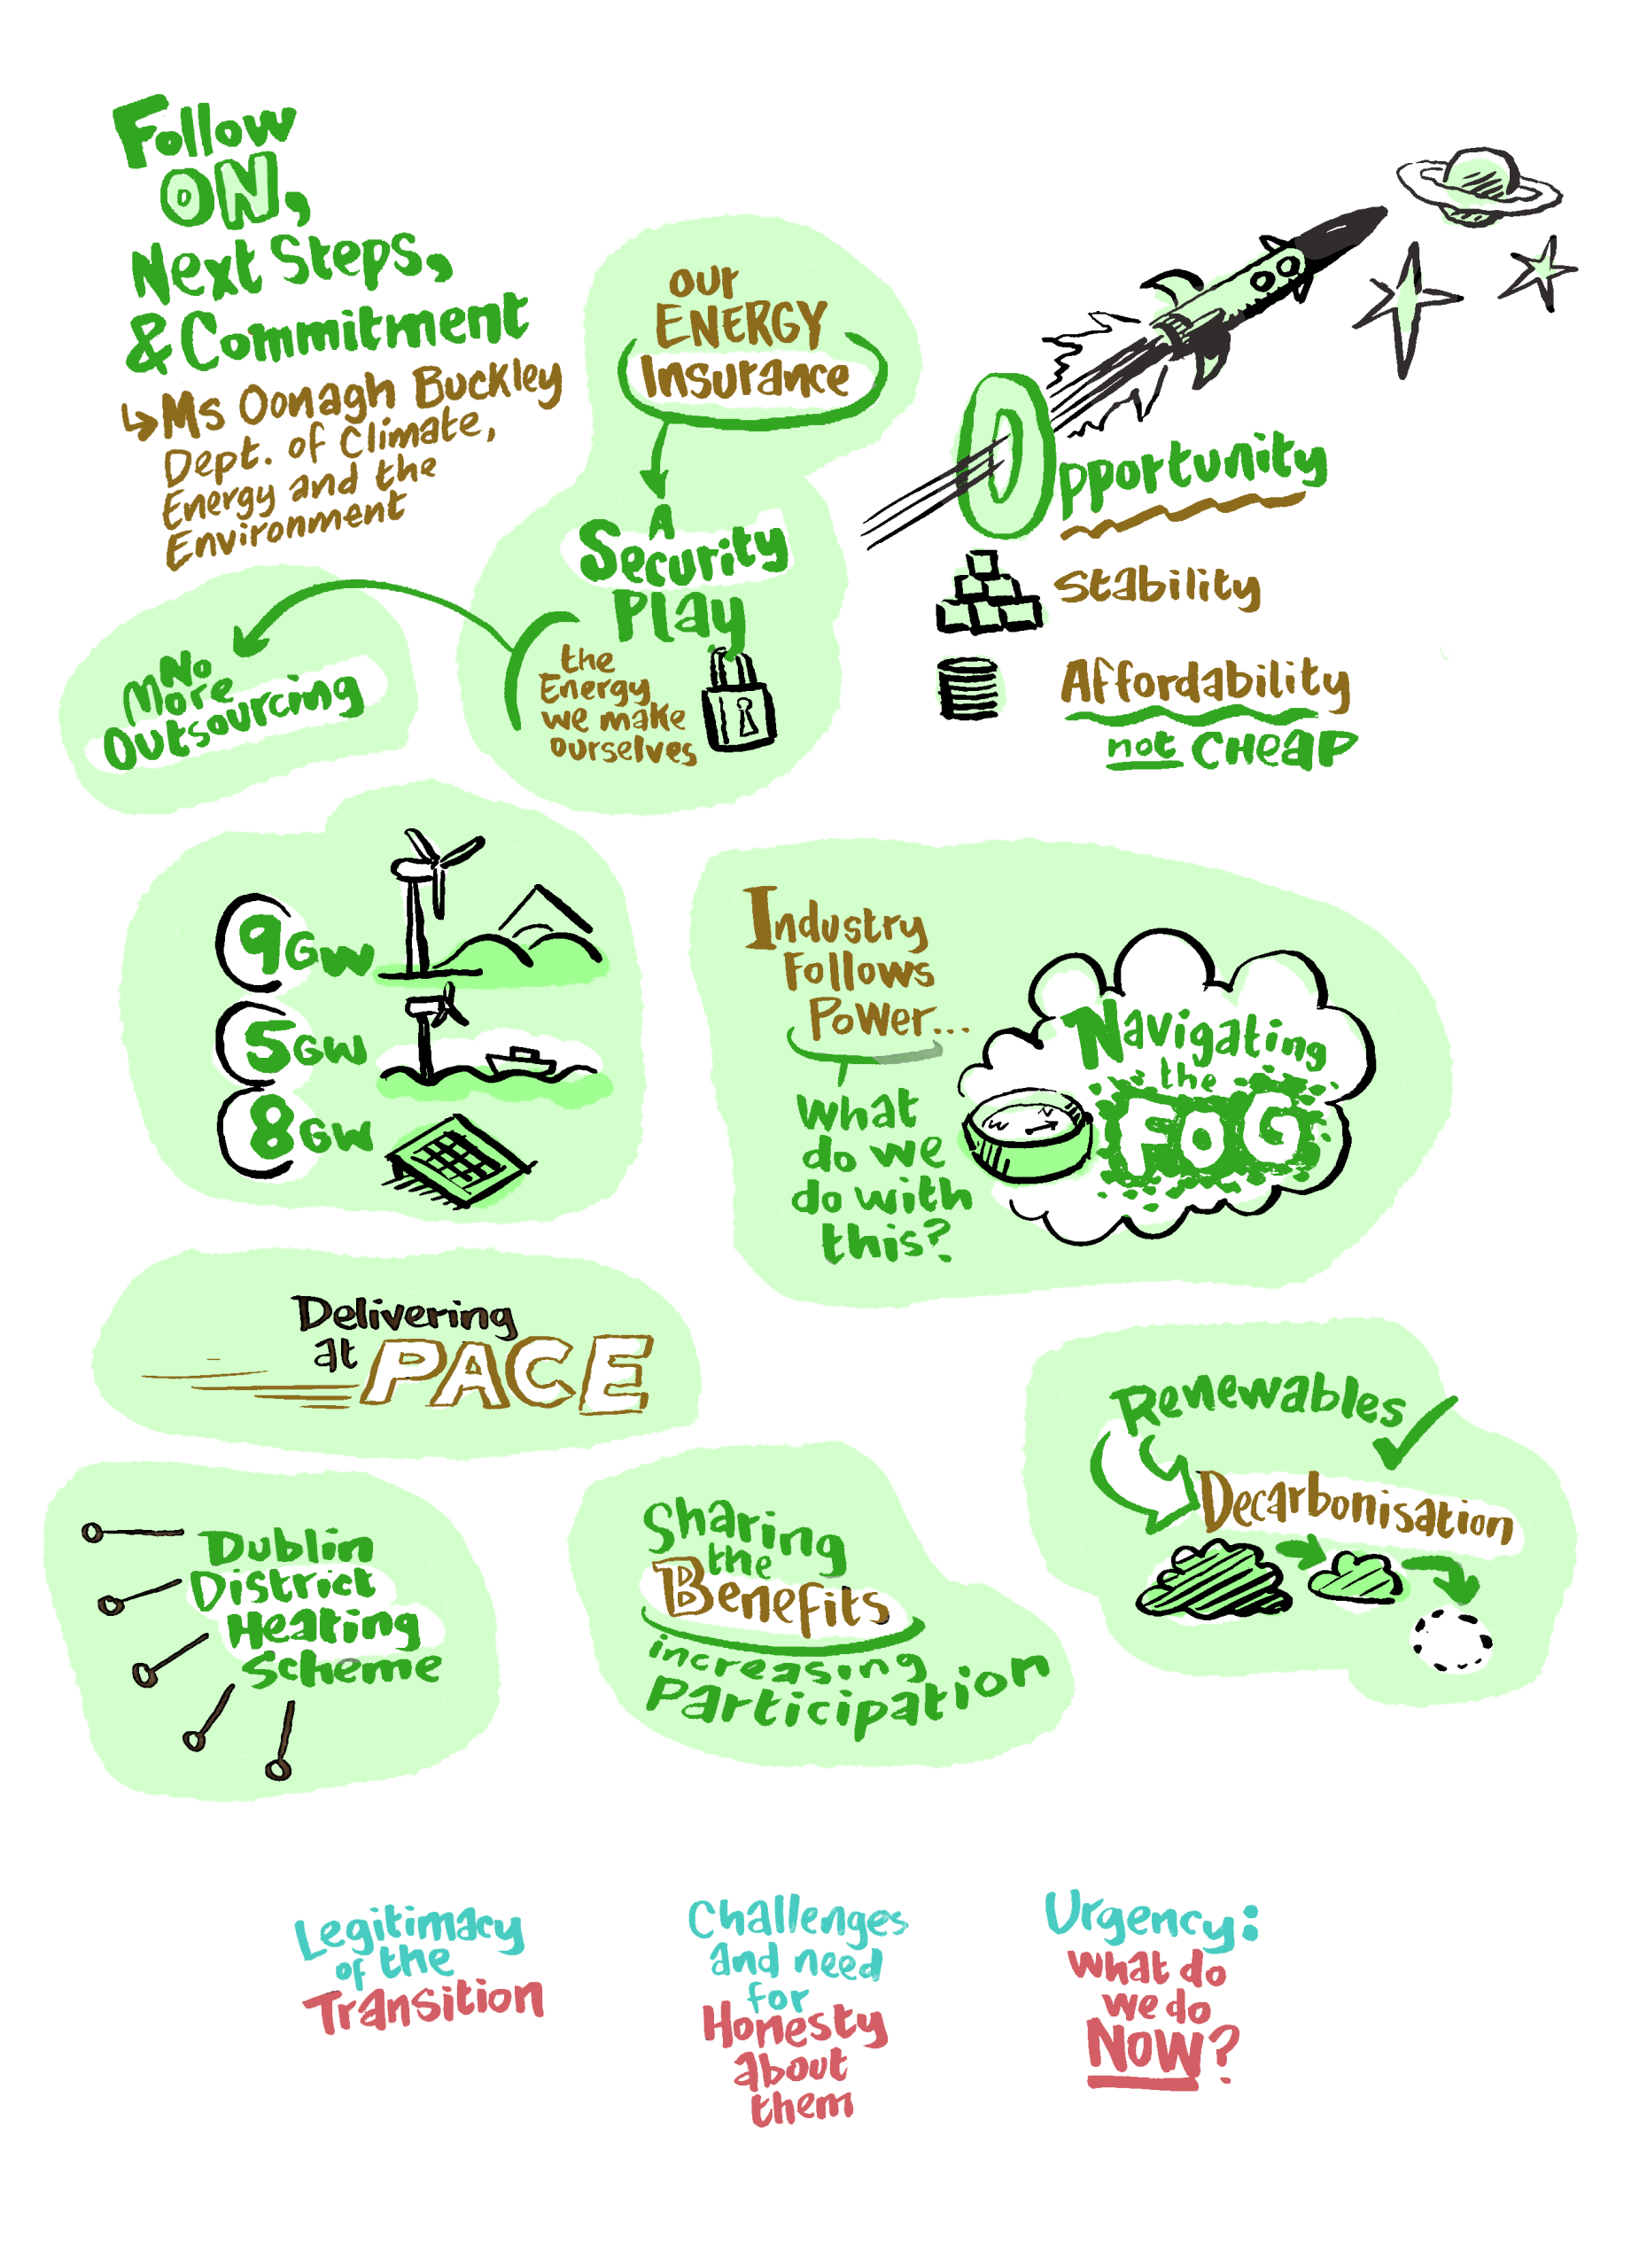 Follow
ON,
Next Steps,
& Commitment
Ms Oonagh Buckley
Dept. of Climate,
Energy and the
Environment
our
ENERGY
Insurance
A
Security
Play
the
Energy
we make
ourselves
No
More
Outsourcing
Opportunity
Stability
Affordability
not CHEAP
9GW
5GW
8GW
Industry
Follows
Power...
What
do we
do with
this?
Navigating
the
FOG
N
W
Delivering
at PACE
Renewables
Decarbonisation
Dublin
District
Heating
Scheme
Sharing
the
Benefits
increasing
Participation
Legitimacy
of the
Transition
Challenges
and need
for
Honesty
about
them
Urgency:
What do
we do
NOW?